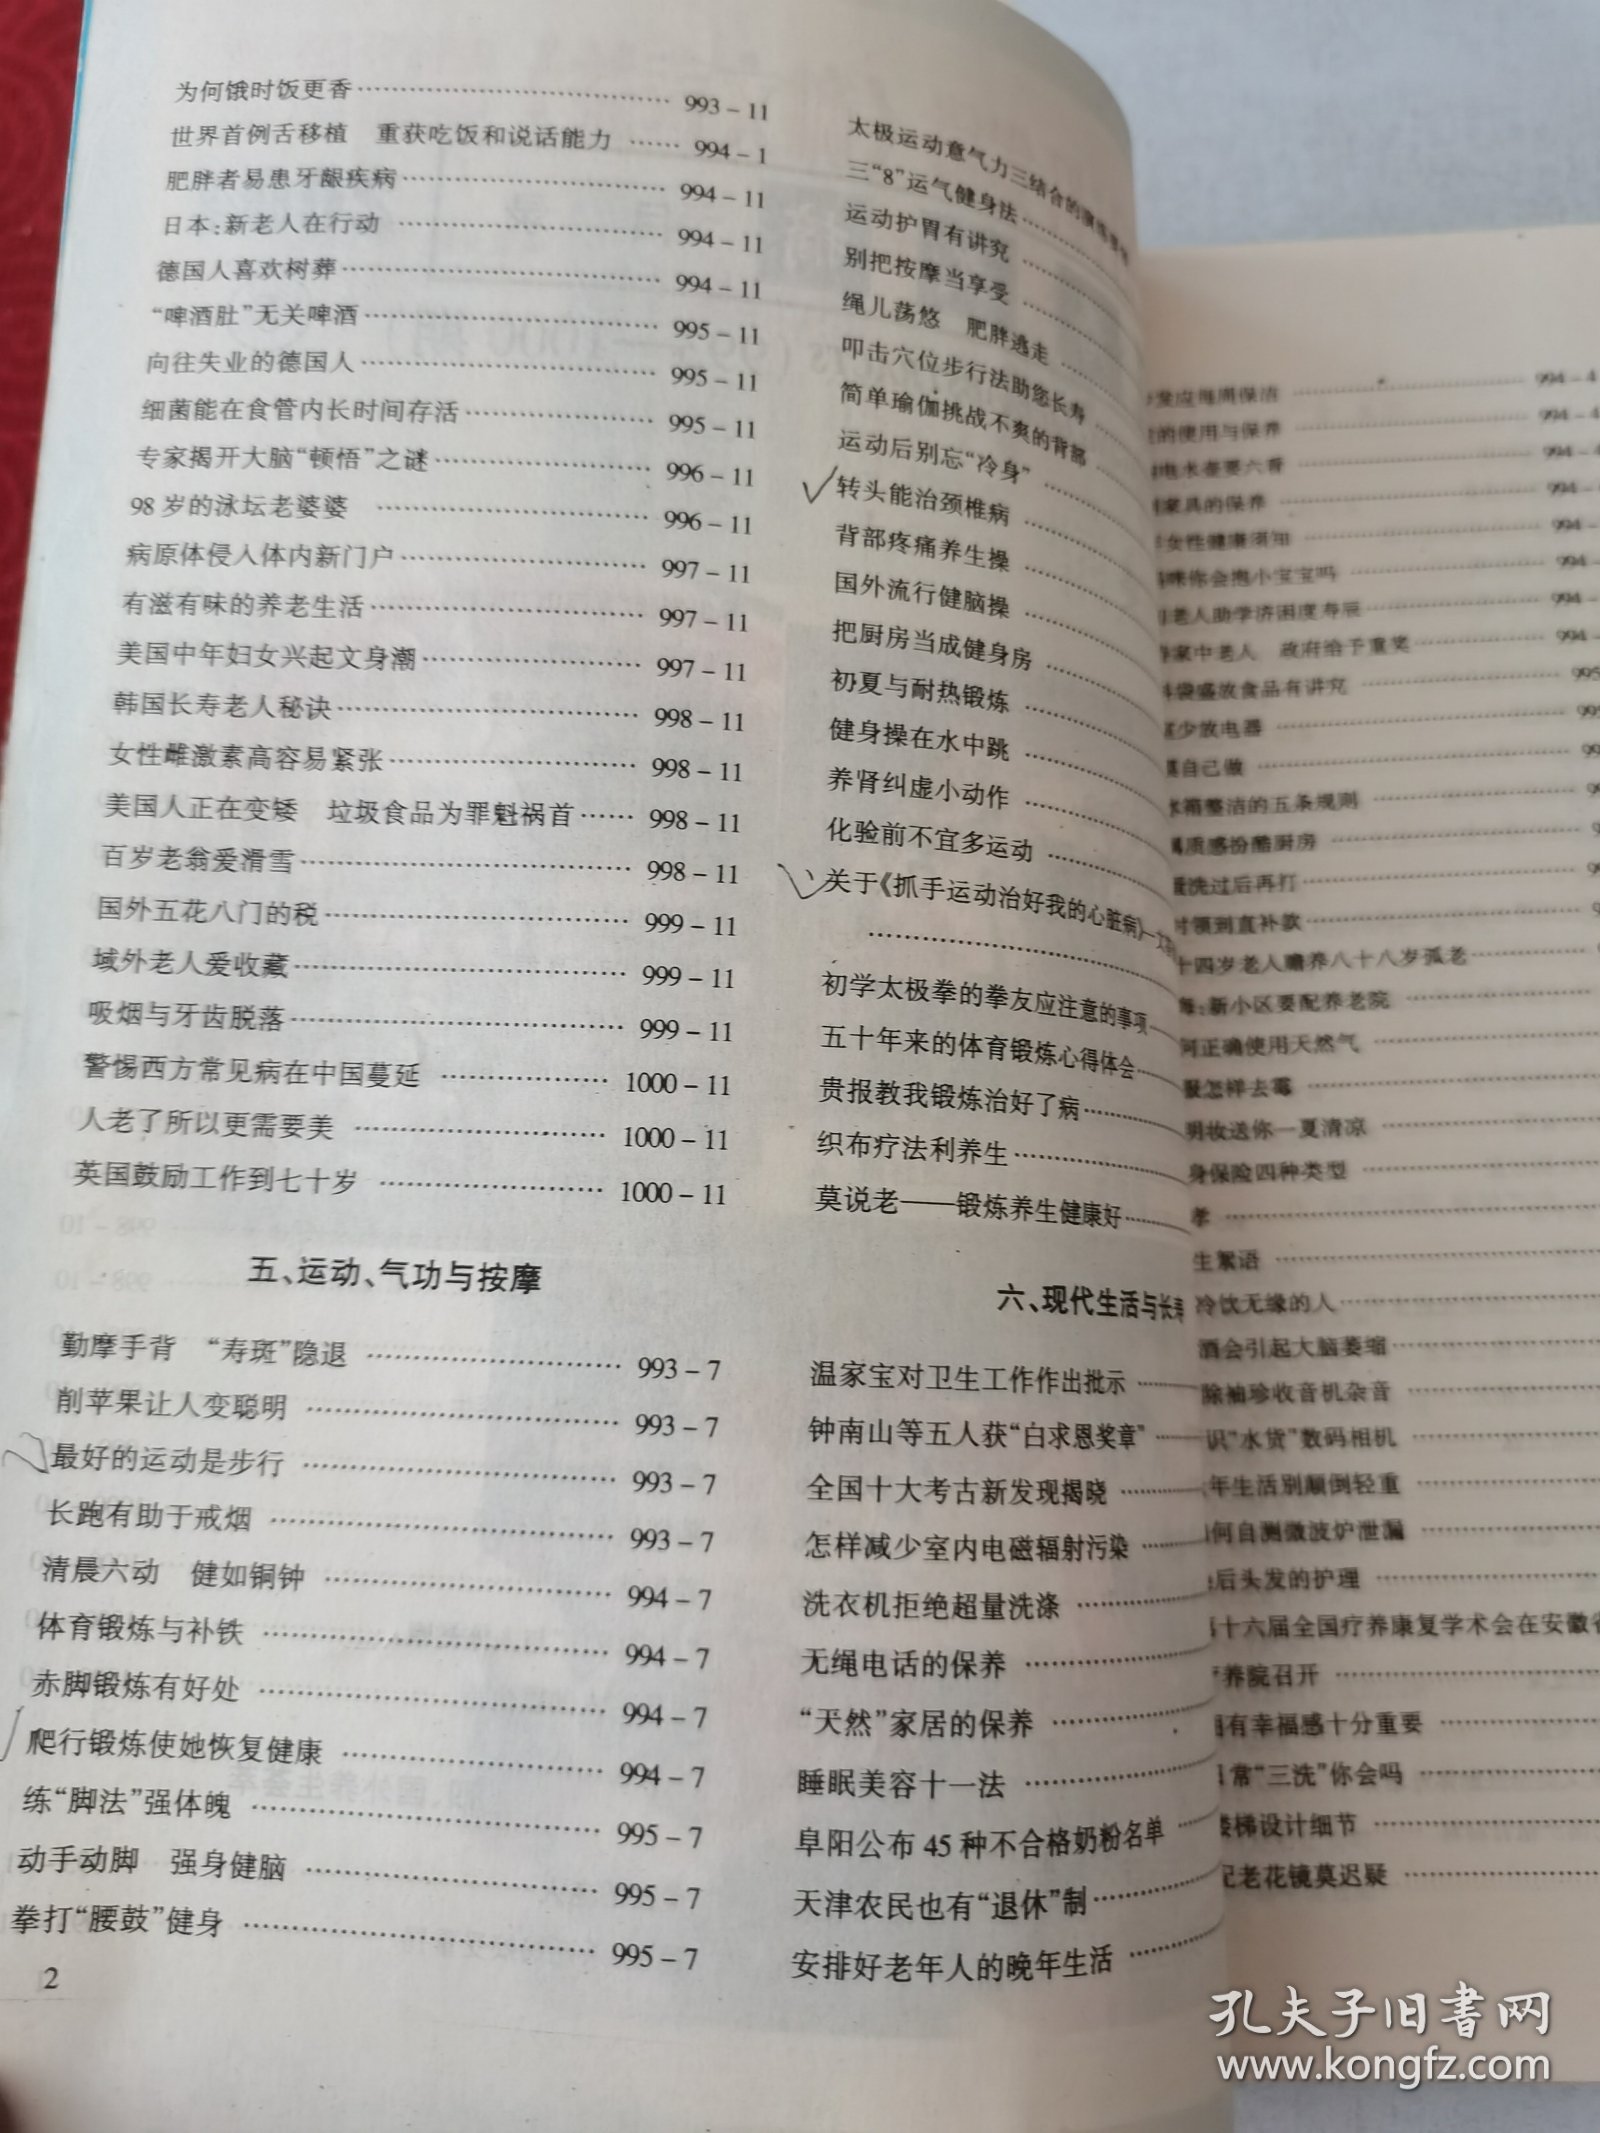 为何饿时饭更香 993-11
世界首例舌移植　重获吃饭和说话能力 994-1
肥胖者易患牙龈疾病 994-11
日本:新老人在行动 994-11
德国人喜欢树葬 994-11
“啤酒肚”无关啤酒 995-11
向往失业的德国人 995-11
细菌能在食管内长时间存活 995-11
专家揭开大脑“顿悟”之谜 996-11
98岁的泳坛老婆婆 996-11
病原体侵入体内新门户 997-11
有滋有味的养老生活 997-11
美国中年妇女兴起文身潮 997-11
韩国长寿老人秘诀 998-11
女性雌激素高容易紧张 998-11
美国人正在变矮　垃圾食品为罪魁祸首 998-11
百岁老翁爱滑雪 998-11
国外五花八门的税 999-11
域外老人爱收藏 999-11
吸烟与牙齿脱落 999-11
警惕西方常见病在中国蔓延 1000-11
人老了所以更需要美 1000-11
英国鼓励工作到七十岁 1000-11
五、运动、气功与按摩
勤摩手背　“寿斑”隐退 993-7
削苹果让人变聪明 993-7
最好的运动是步行 993-7
长跑有助于戒烟 993-7
清晨六动　健如铜钟 994-7
体育锻炼与补铁 994-7
赤脚锻炼有好处 994-7
爬行锻炼使她恢复健康 994-7
练“脚法”强体魄 995-7
动手动脚　强身健脑 995-7
拳打“腰鼓”健身 995-7
2
太极运动意气力三结合的
三“8”运气健身法
运动护胃有讲究
别把按摩当享受
绳儿荡悠　肥胖逃走
叩击穴位步行法助您长寿
简单瑜伽挑战不爽的背部
运动后别忘“冷身”
转头能治颈椎病
背部疼痛养生操
国外流行健脑操
把厨房当成健身房
初夏与耐热锻炼
健身操在水中跳
养肾纠虚小动作
化验前不宜多运动
关于《抓手运动治好我的心脏病》一文
初学太极拳的拳友应注意的事项
五十年来的体育锻炼心得体会
贵报教我锻炼治好了病
织布疗法利养生
莫说老——锻炼养生健康好
六、现代生活与长寿
温家宝对卫生工作作出批示
钟南山等五人获“白求恩奖章”
全国十大考古新发现揭晓
怎样减少室内电磁辐射污染
洗衣机拒绝超量洗涤
无绳电话的保养
“天然”家居的保养
睡眠美容十一法
阜阳公布45种不合格奶粉名单
天津农民也有“退休”制
安排好老年人的晚年生活
发应每周保洁 994-4
的使用与保养 994-4
电水壶要六看 994-4
家具的保养 994-
女性健康须知 994-
咪你会抱小宝宝吗 994-
老人助学济困度寿辰 994-
家中老人　政府给予重奖 994-
袋盛放食品有讲究 995
少放电器 995
自己做 99
箱整洁的五条规则
质感扮酷厨房
洗过后再打
领到直补款
十四岁老人赡养八十八岁孤老
:新小区要配养老院
何正确使用天然气
服怎样去霉
男妆送你一夏清凉
身保险四种类型
孝
生絮语
冷饮无缘的人
酒会引起大脑萎缩
除袖珍收音机杂音
识“水货”数码相机
年生活别颠倒轻重
何自测微波炉泄漏
后头发的护理
十六届全国疗养康复学术会在安徽省
养院召开
有幸福感十分重要
常“三洗”你会吗
楼梯设计细节
配老花镜莫迟疑
孔夫子旧书网
www.kongfz.com